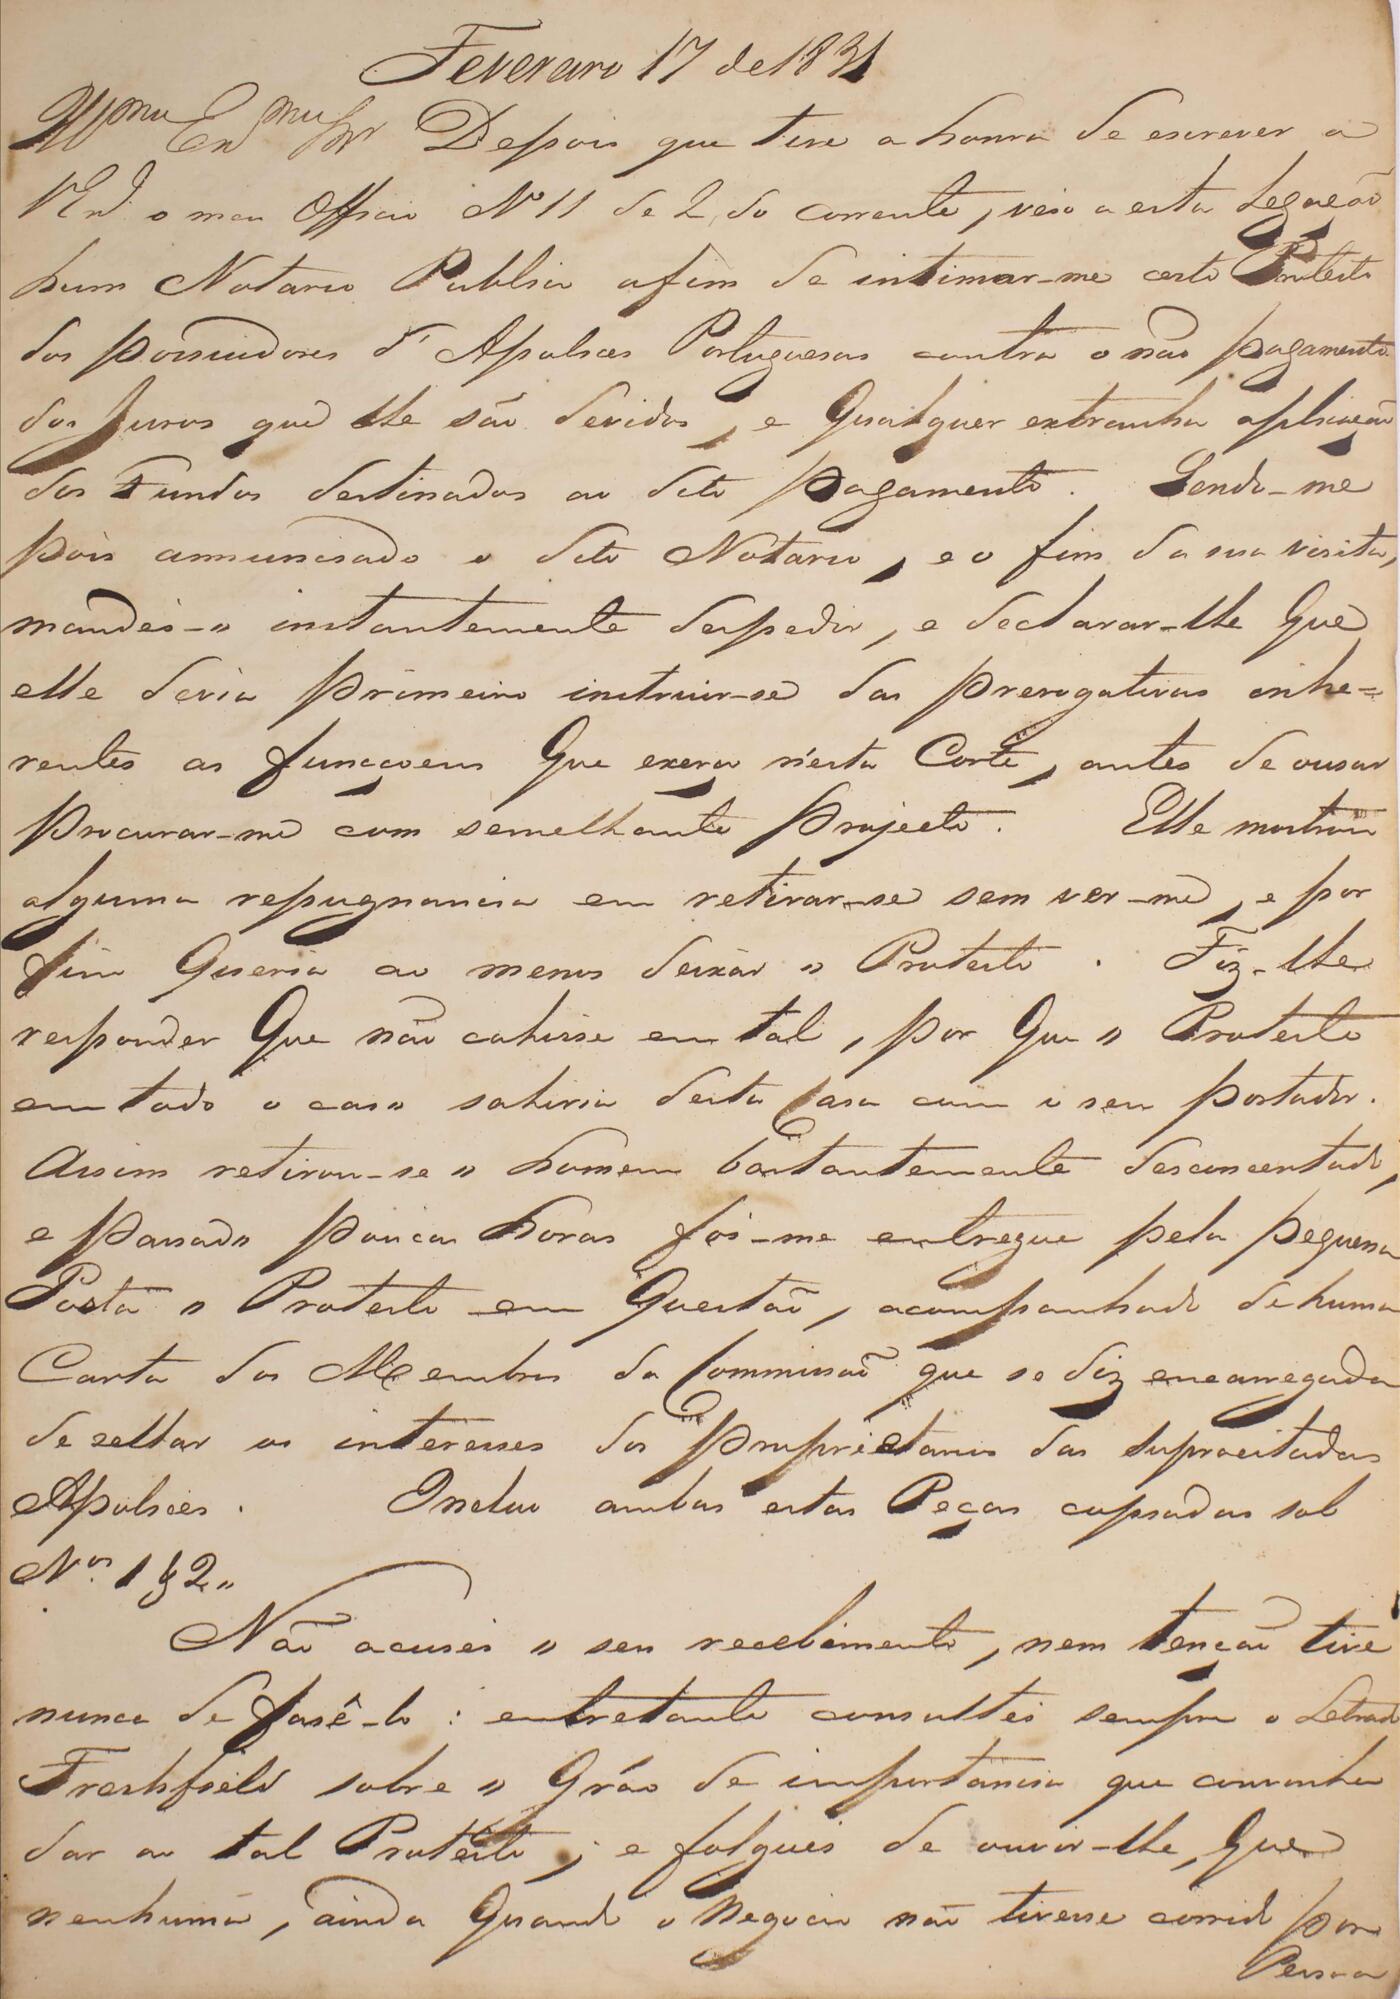 Fevereiro 17 de 1831
Illmo Exmo Snr Depois que tive a honra de escrever a
V Exa o meu Officio No 11 de 2 do corrente, veio a esta Legação
hum Notario Publico afim de intimar-me certo Protesto
dos possuidores d' Apolices Portuguesas contra o não pagamento
dos Juros que lhe são devidos, e Qualquer extranha aplicação
dos Fundos destinados ao dito pagamento. Sendo-me
pois annunciado o dito Notario, e o fim da sua visita,
mandei-o instantemente despedir, e declarar-lhe Que
elle devia primeiro instruir-se das prerogativas inhe=
rentes as funçoens Que exerço n'esta Corte, antes de ousar
procurar-me com semelhante projecto. Elle mostrou
alguma repugnancia em retirar-se sem ver-me, e por
fim Queria ao menos deixar o Protesto. Fiz-lhe
responder Que não cahisse em tal, por Que o Protesto
em todo o caso sahiria desta Casa com o seu portador.
Assim retirou-se o homem bastantemente desconcertado,
e passado poucas horas foi-me entregue pela pequena
Posta o Protesto em Questão, acompanhado de huma
Carta dos Membros da Commissão que se diz encarregada
de zellar os interesses dos proprietarios das supracitadas
Apolices. Incluo ambas estas Peças copiadas sob
Nos. 1 & 2.
Não acusei o seu recebimento, nem tenção tive
nunca de fasê-lo: entretanto consultei sempre o Letrado
Freshfield sobre o Gráo de importancia que convinha
dar ao tal Protesto; e folguei de ouvir-lhe, Que
nenhuma, ainda Quando o Negocio não tivesse corrido por
Pessoa